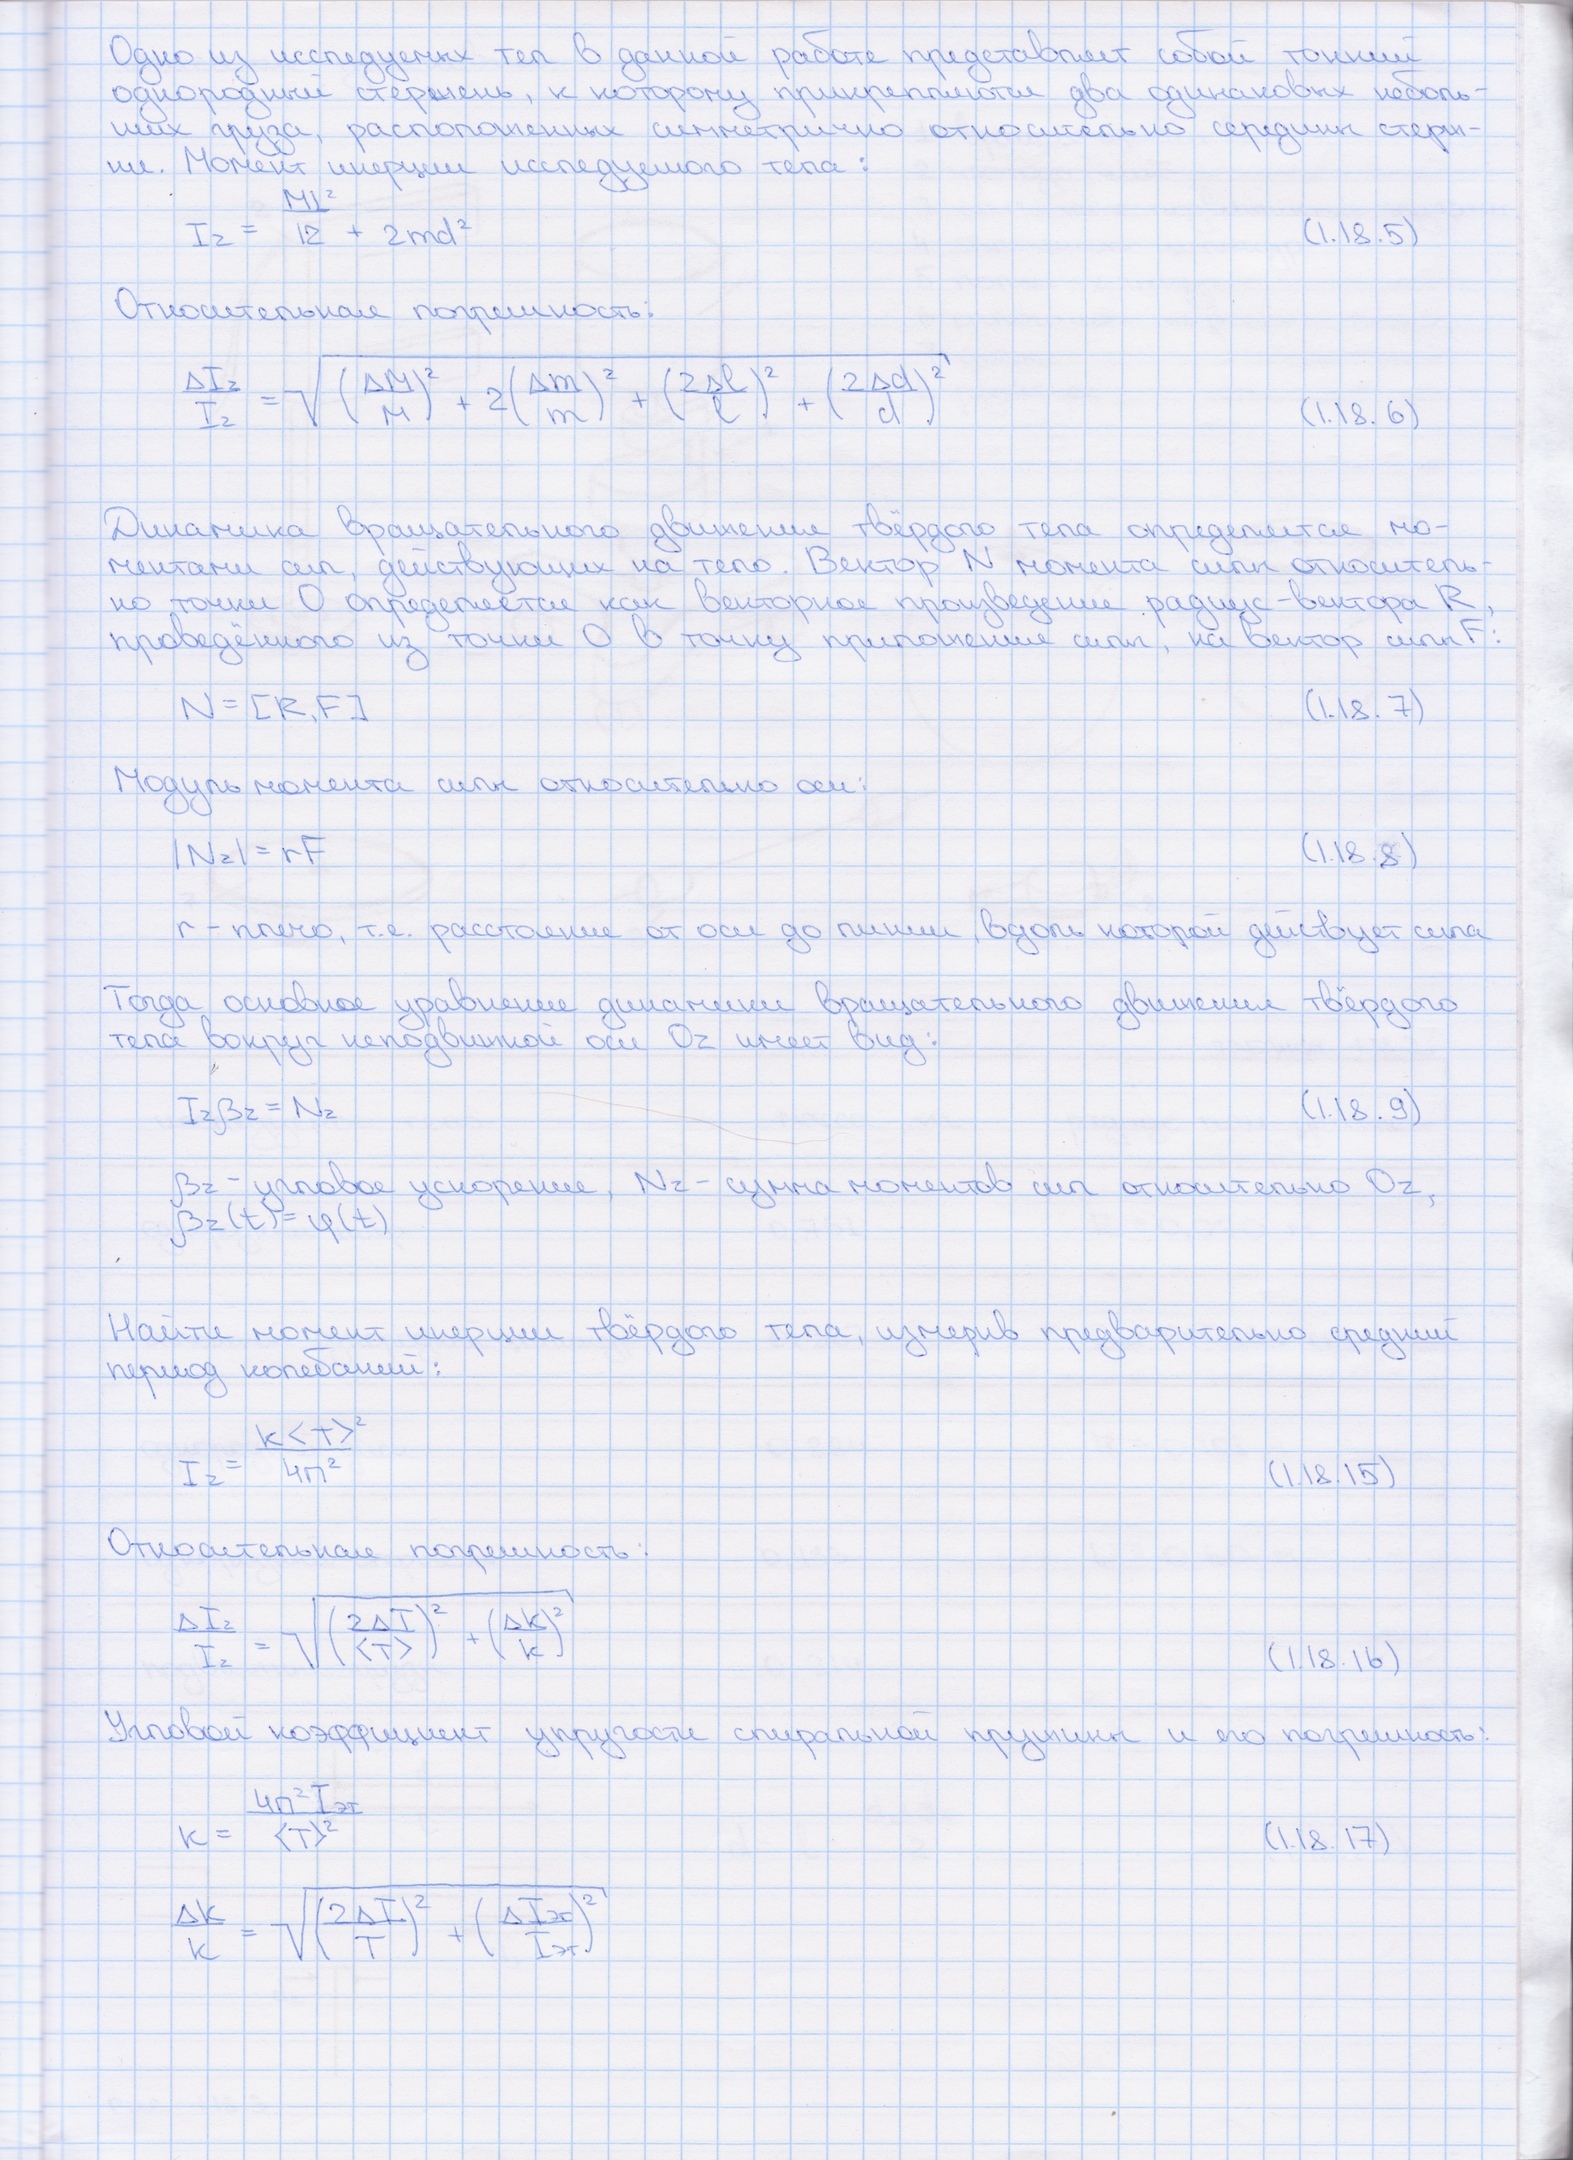 Одно из исследуемых тел в данной работе представляет собой тонкий
однородный стержень, к которому прикрепляются два одинаковых неболь-
ших груза, расположенных симметрично относительно середины стерж-
ня. Момент инерции исследуемого тела:
Iz = Ml²/12 + 2md² (1.18.5)
Относительная погрешность:
ΔIz/Iz = √((ΔM/M)² + 2(Δm/m)² + (2Δl/l)² + (2Δd/d)²) (1.18.6)
Динамика вращательного движения твёрдого тела определяется мо-
ментами сил, действующих на тело. Вектор N момента силы относитель-
но точки O определяется как векторное произведение радиус-вектора R,
проведённого из точки O в точку приложения силы, на вектор силы F:
N = [R,F] (1.18.7)
Модуль момента силы относительно оси:
|Nz| = rF (1.18.8)
r - плечо, т.е. расстояние от оси до линии, вдоль которой действует сила
Тогда основное уравнение динамики вращательного движения твёрдого
тела вокруг неподвижной оси Oz имеет вид:
Izβz = Nz (1.18.9)
βz - угловое ускорение, Nz - сумма моментов сил относительно Oz,
βz(t) = φ(t)
Найти момент инерции твёрдого тела, измерив предварительно средний
период колебаний:
Iz = k<T>²/4π² (1.18.15)
Относительная погрешность:
ΔIz/Iz = √((2ΔT/<T>)² + (Δk/k)²) (1.18.16)
Угловой коэффициент упругости спиральной пружины и его погрешность:
k = 4π²Iэт/<T>² (1.18.17)
Δk/k = √((2ΔT/T)² + (ΔIэт/Iэт)²)